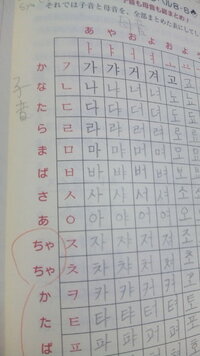 それでは子音と母音を、全部まとめた表にして
あ や お よ お
ㅏ ㅑ ㅓ ㅕ ㅗ
子音
か ㄱ 가 갸 거 겨 고
な ㄴ 나 냐 너 녀 노
た ㄷ 다 댜 더 뎌 도
ら ㄹ 라 랴 러 려 로
ま ㅁ 마 먀 머 며 모
ば ㅂ 바 뱌 버 벼 보
さ ㅅ 사 샤 서 셔 소
あ ㅇ 아 야 어 여 오
ちゃ ㅈ 자 쟈 저 져 조
ちゃ ㅊ 차 챠 처 쳐 초
か ㅋ 카 캬 커 켜 코
た ㅌ 타 탸 터 텨 토
ぱ ㅍ 파 퍄 퍼 펴 포